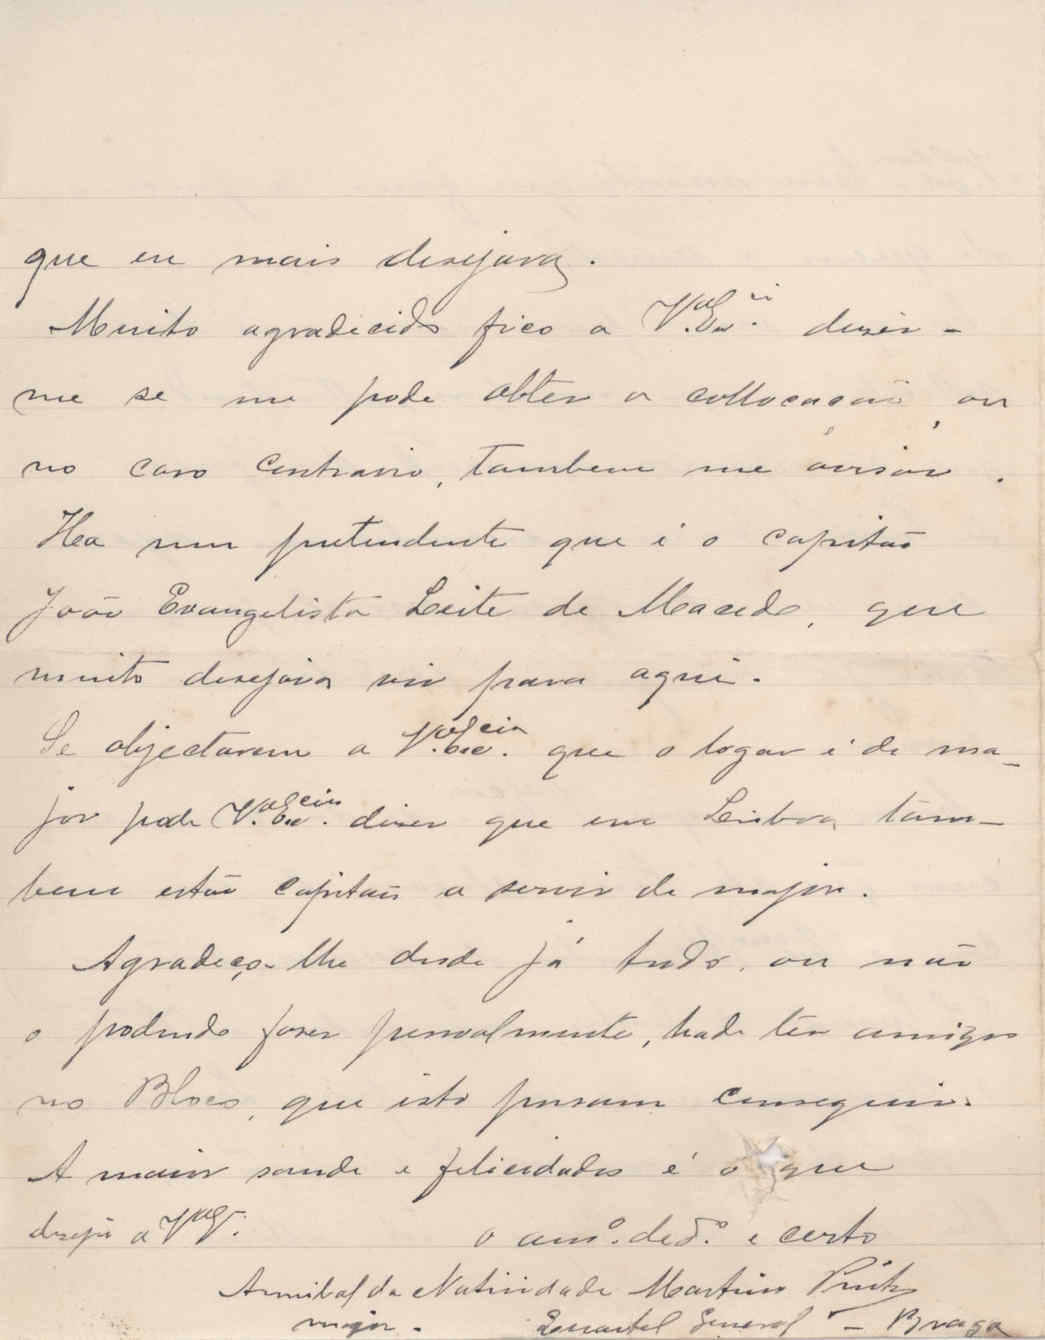 que eu mais desejava.
Muito agradecido fico a V. Exª. dizer-
me se me pode obter a collocação, ou
no caso contrario, tambem me avisar.
Ha um pretendente que é o capitão
João Evangelista Leite de Macedo, que
muito desejava vir para aqui.
Se objectarem a V. Excia. que o logar é de ma-
jor pode V. Excia. dizer que em Lisboa tam-
bem estão capitães a servir de major.
Agradeço-lhe desde já tudo, ou não
o podendo fazer pessoalmente, hade ter amigos
no Bloco, que isto possam conseguir.
A maior saude e felicidades é o que
deseja a
o amº. dedº. e certo
Annibal da Natividade Martins
major. Quartel General - Braga